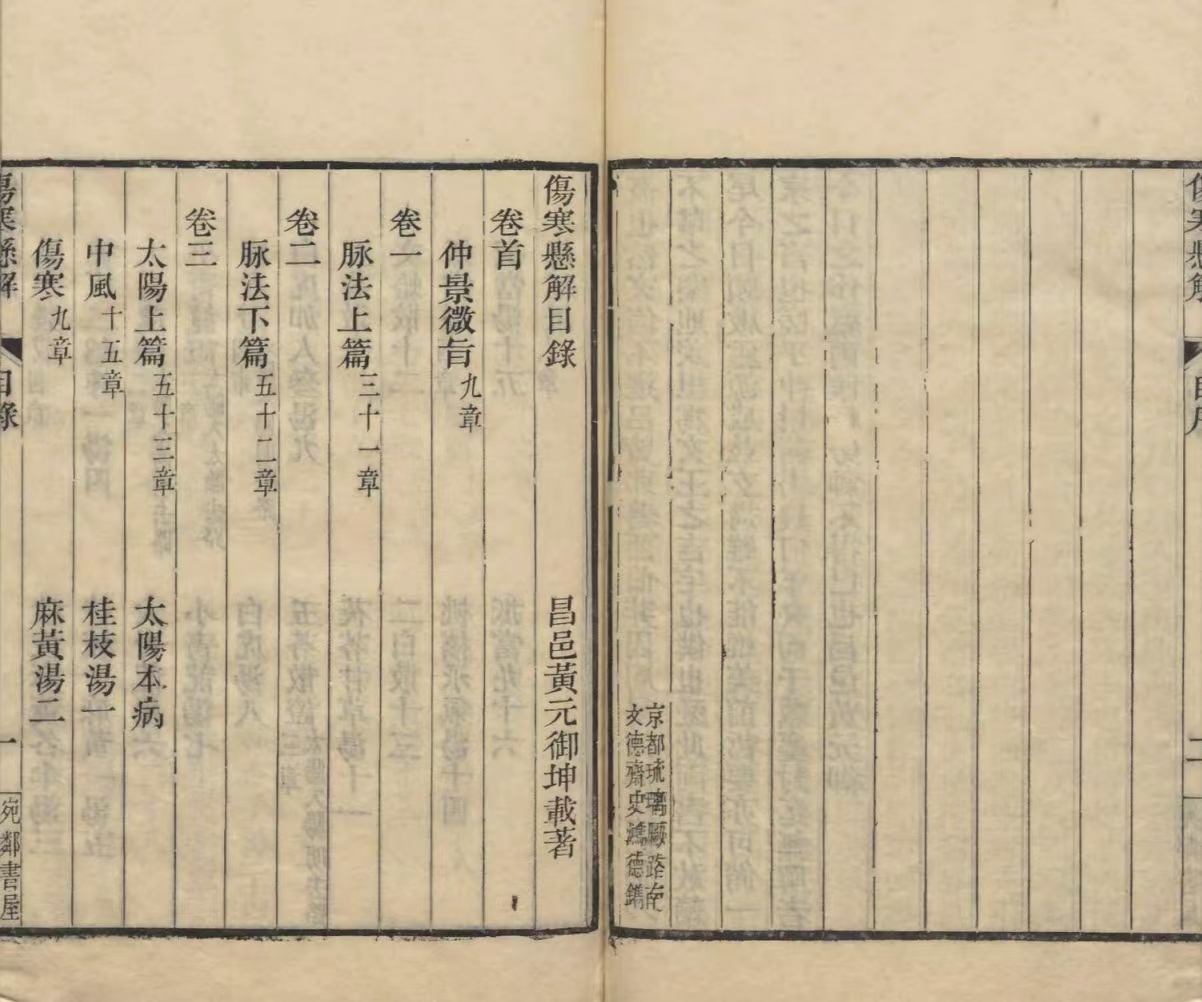 傷寒懸解
自序
二
京都琉璃廠路南
文德齋史鴻德鐫
傷寒懸解目錄 昌邑黃元御坤載著
卷首
仲景微旨九章
卷一
脉法上篇三十一章
卷二
脉法下篇五十二章
卷三
太陽上篇五十三章 太陽本病
中風十五章 桂枝湯一
傷寒九章 麻黃湯二
傷寒懸解
目錄
一
宛鄰書屋